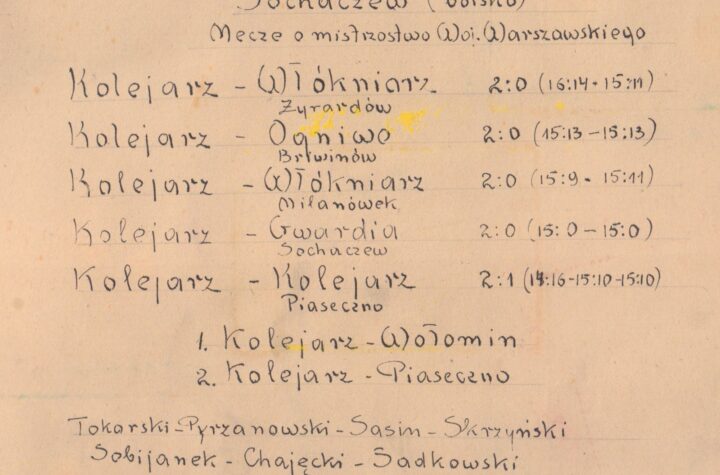 Sochaczew (boisko)
Mecze o mistrzostwo Woj. Warszawskiego
Kolejarz - Włókniarz 2:0 (16:14 - 15:11)
Żyrardów
Kolejarz - Ogniwo 2:0 (15:13 - 15:13)
Brwinów
Kolejarz - Włókniarz 2:0 (15:9 - 15:11)
Milanówek
Kolejarz - Gwardia 2:0 (15:0 - 15:0)
Sochaczew
Kolejarz - Kolejarz 2:1 (14:16 - 15:10 - 15:10)
Piaseczno
1. Kolejarz - Wołomin
2. Kolejarz - Piaseczno
Tokarski - Pyrzanowski - Sasin - Skrzyński
Sobijanek - Chajęcki - Sadkowski